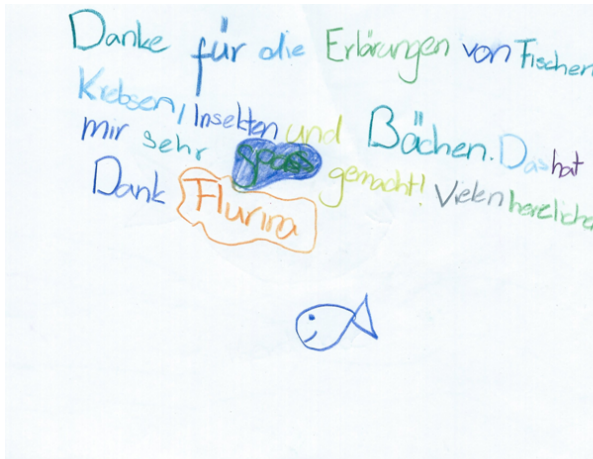 Danke für die Erlärungen von Fischen
Krebsen, Insekten und Bächen. Das hat
mir sehr spass gemacht! Vielen herzlichen
Dank Flurina